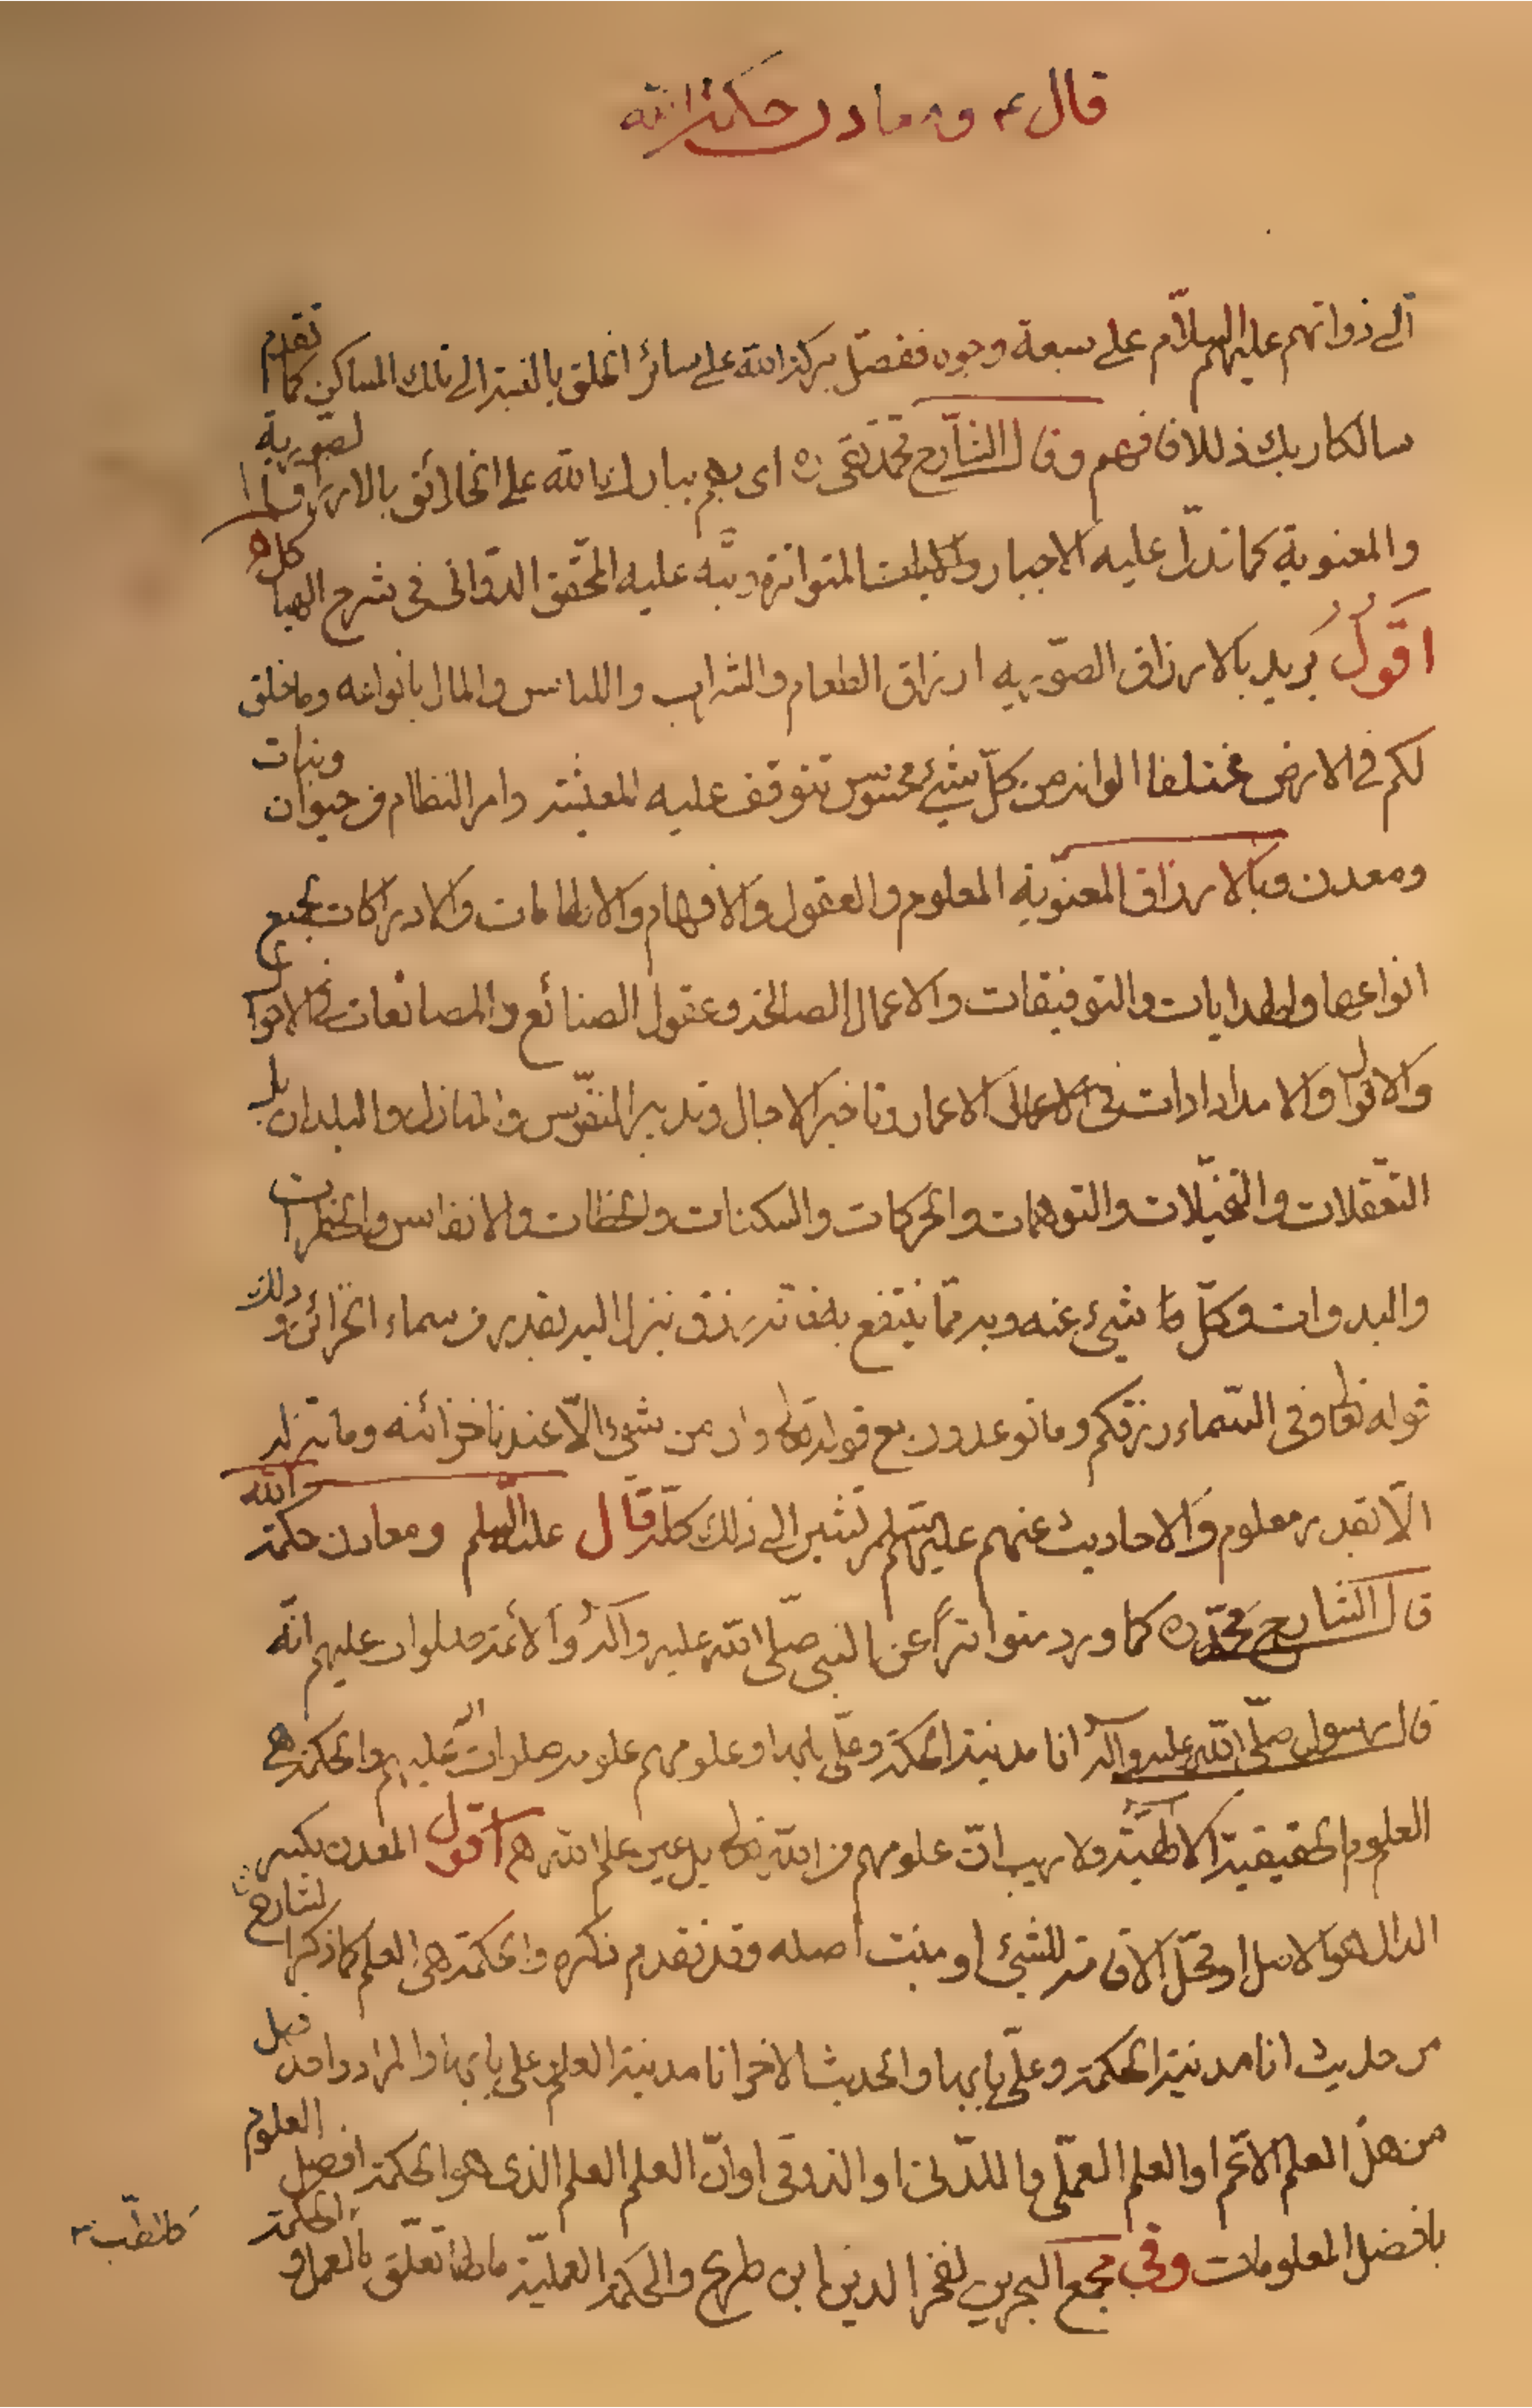 قال ع ومعادن حكمة الله
آلى ذواتهم عليهم السلام على سبعة وجوه ففصّل بركة الله على سائر الخلق بالنسبة الى تلك المساكن كما تقدم
سالكا ربك ذللا فافهم وقال الشارح محمد تقى ره اى بهم يبارك الله على الخلائق بالارزاق الصّورية
والمعنوية كما تدلّ عليه الاخبار المتواترة ونبّه عليه المحقق الدّوانى فى شرح الهياكل
اقول يريد بالارزاق الصّوريه ارزاق الطعام والشراب واللباس والمال بانواعه وما خلق
لكم فى الارض مختلفا الوانه من كلّ شئ محسوس تتوقف عليه المعيشة وامر النظام من حيوان ونبات
ومعدن وبالارزاق المعنويّة العلوم والعقول والافهام والالهامات والادراكات بجميع
انواعها والهدايات والتوفيقات والاعمال الصالحة وعقول الصنائع والمصانعات فى الاحوال
والاقوال والامدادات فى الاعمار وتاخير الاجال وتدبير النفوس والمنازل والبلدان بل
التعقلات والتخيّلات والتوهمات والحركات والسكنات واللحظات والانفاس والخطرات
والبدوات وكلّ ما شيئ عنه وبه ممّا ينتفع به فانه رزق ينزل اليه بقدر من سماء الخزائن وذلك
قوله تعالى وفى السّماء رزقكم وما توعدون مع قوله تعالى وان من شئ الّا عندنا خزائنه وما ننزله
الّا بقدر معلوم والاحاديث عنهم عليهم السلم تشير الى ذلك كلّه قال عليه السلم ومعادن حكمة الله
قال الشارح محمّد ره كما ورد متواتراً عن النبى صلّى الله عليه وآله والائمة صلوات عليهم انّه
قال رسول صلّى الله عليه وآله انا مدينة الحكمة وعلىّ بابها وعلومهم علومه صلوات الله عليهم والحكمة هى
العلوم الحقيقيّة الالهيّة ولا ريب انّ علومهم من الله تعالى بل عين علم الله هم اقول المعدن بكسر
الدال هو الاصل او محلّ الاقامة للشئ او منبت اصله وقد تقدم ذكره والحكمة هى العلم كما ذكر الشارح
من حديث انا مدينة الحكمة وعلىّ بابها والحديث الاخر انا مدينة العلم وعلى بابها والمراد واحد
من هذا العلم الاعّم او العلم العمّلى او الذوقى او انّ العلم العلم الذى هو الحكمة افضل العلوم
بافضل المعلومات وفى مجمع البحرين لفخر الدين ابن طريح والحكمة العمليّة ما لها تعلّق بالعمل
كالطّب